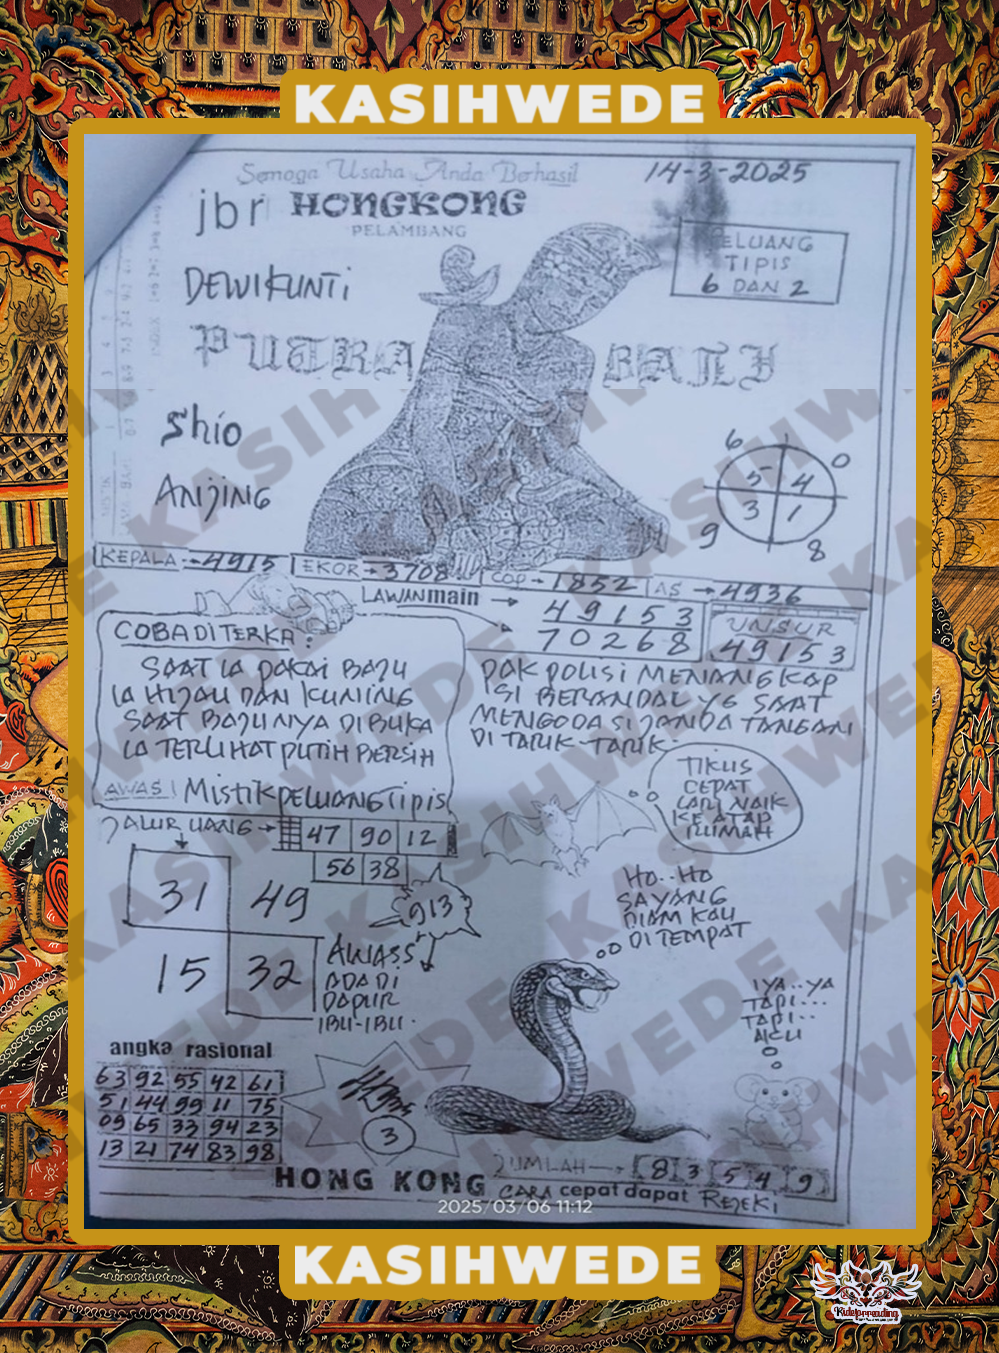 KASIHWEDE
Semoga Usaha Anda Berhasil
14-3-2025
jbr HONGKONG
PELAMBANG
PELUANG
TIPIS
6 DAN 2
DEWIKUNTI
PUTRA BALI
Shio
ANJING
6 0
5 4
3 1
9 8
KEPALA → 4915 EKOR → 3708 COP → 1852 AS → 4936
LAWAN main → 49153
70268
UNSUR
49153
COBA DITERKA
SAAT IA PAKAI BAJU
IA HIJAU DAN KUNING
SAAT BAJUNYA DIBUKA
IA TERLIHAT PUTIH BERSIH
PAK POLISI MENANGKAP
SI BERANDAL YG SAAT
MENGODA SI JANDA TANGAN
DI TARIK-TARIK
AWAS! Mistik PELUANG TIPIS
JALUR UANG → 47 90 12
56 38
31 49
15 32
913
AWASS
ADA DI
DAPUR
IBU-IBU.
TIKUS
CEPAT
LARI NAIK
KE ATAP
RUMAH
HO..HO
SAYANG
DIAM KAU
DI TEMPAT
IYA..YA
TAPI...
TAPI..
AKU
angka rasional
63 92 55 42 61
51 44 99 11 75
09 65 33 94 23
13 21 74 83 98
3
JUMLAH → 8 3 5 4 9
HONG KONG CARA cepat dapat REJEKI
2025/03/06 11:12
KASIHWEDE